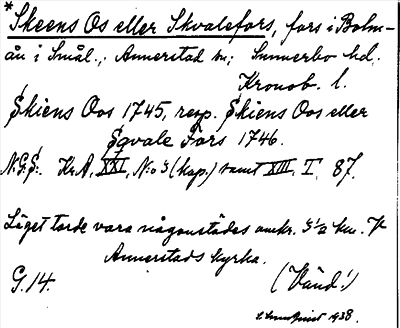 *Skeens Os eller Skvalefors, fors i Bolm-
ån i Smål., Annerstad sn; Sunnerbo hd.
Kronob. l.
Skiens Oos 1745, resp. Skiens Oos eller
Sqvale Fors 1746.
N.G.S: Kr.A, XXI, N:o 3 (kop.) samt XIII, I 87.
Läget torde vara någonstädes omkr. 3½ km. V
Annerstads kyrka.
G. 14. (Vänd!)
1938.